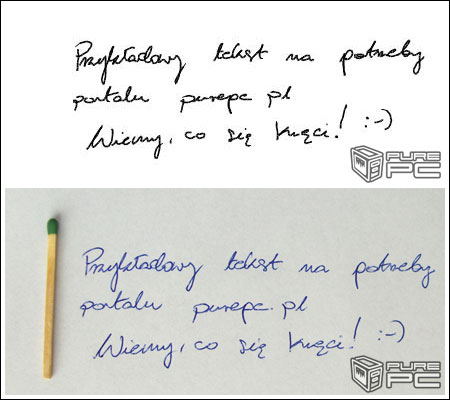 Przykładowy tekst na potrzeby
portalu purepc.pl
Wiemy, co się kręci! :-)
PURE
PC
Przykładowy tekst na potrzeby
portalu purepc.pl
Wiemy, co się kręci! :-)
PURE
PC